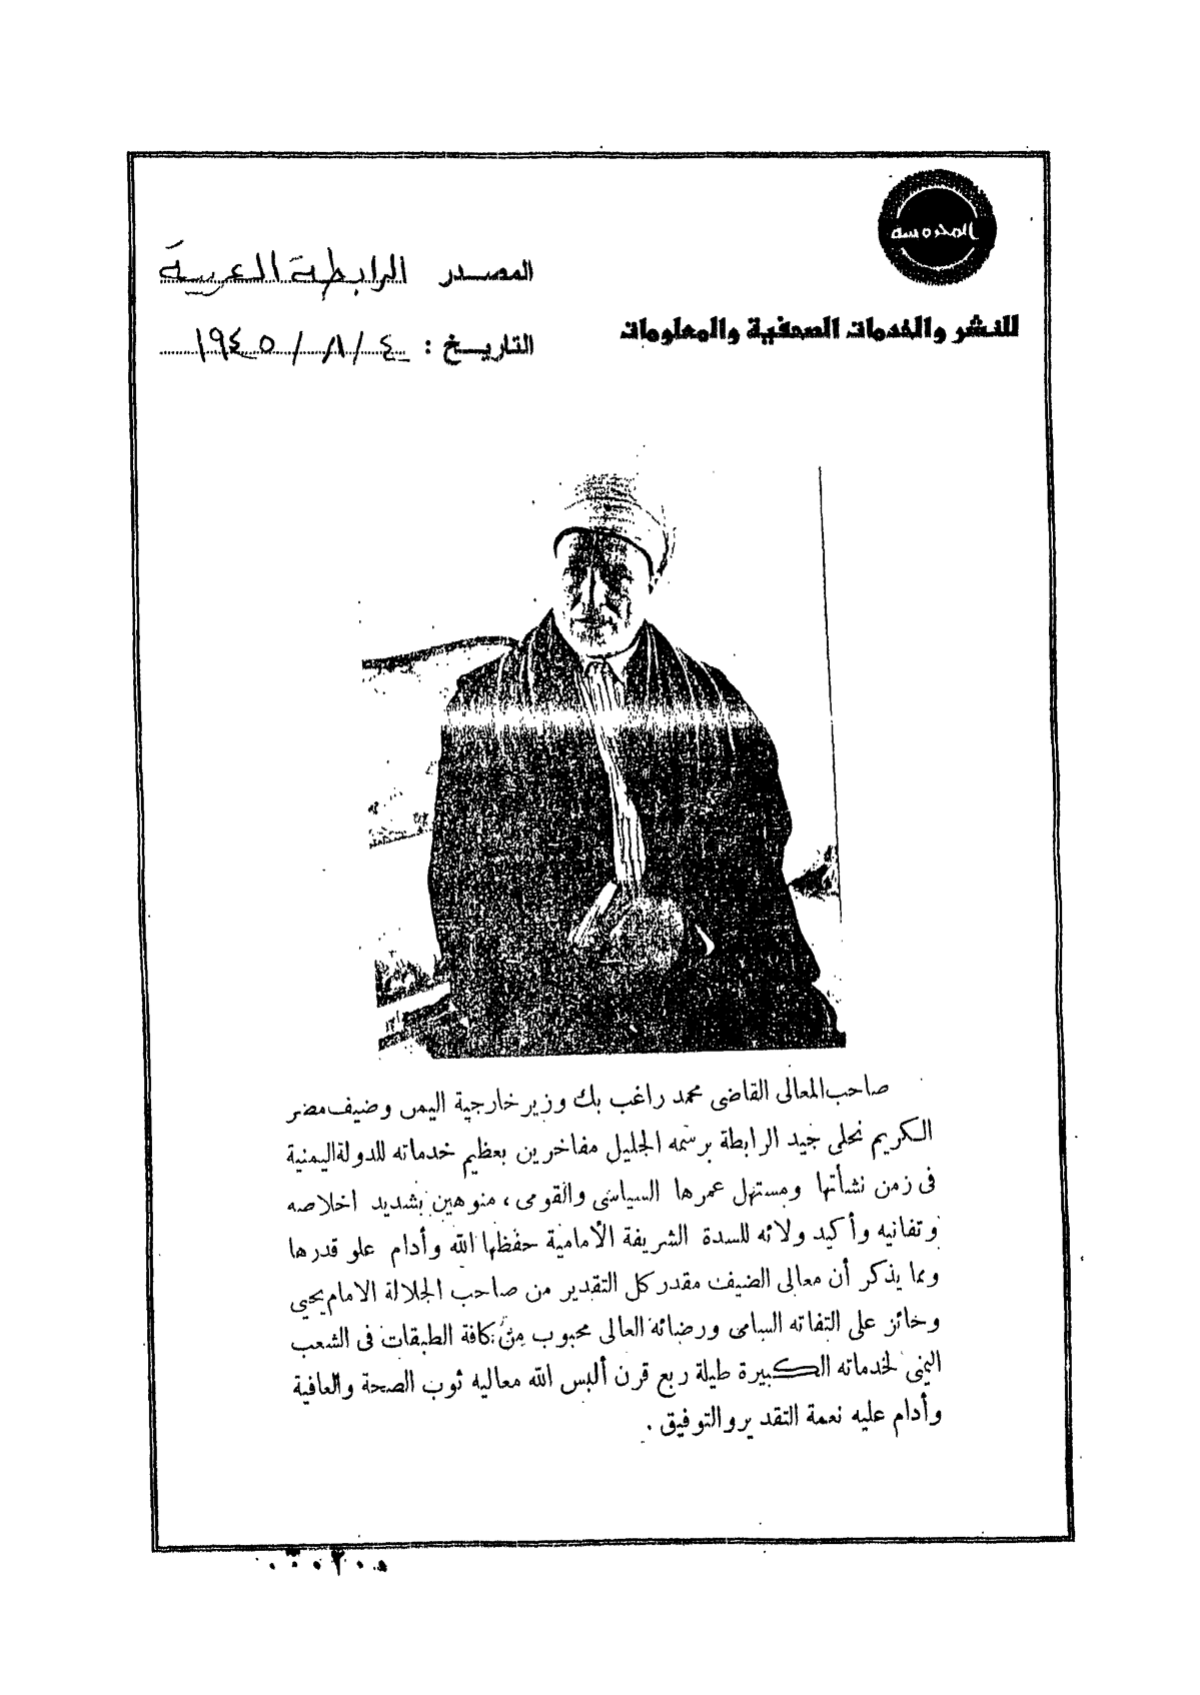 المحروسة
للنشر والخدمات الصحفية والمعلومات
المصدر الرابطة العربية
التاريخ : ٤ / ٨ / ١٩٤٥
صاحب المعالى القاضى محمد راغب بك وزير خارجية اليمن وضيف مصر
الكريم نحلى جيد الرابطة برسمه الجليل مفاخرين بعظيم خدماته للدولة اليمنية
فى زمن نشأتها ومستهل عمرها السياسى والقومى ، منوهين بشديد اخلاصه
وتفانيه وأكيد ولائه للسدة الشريفة الأمامية حفظها الله وأدام علو قدرها
ومما يذكر أن معالى الضيف مقدر كل التقدير من صاحب الجلالة الامام يحيى
وحائز على التفاته السامى ورضائه العالى محبوب من كافة الطبقات فى الشعب
اليمنى لخدماته الكبيرة طيلة ربع قرن ألبس الله معاليه ثوب الصحة والعافية
وأدام عليه نعمة التقدير والتوفيق .